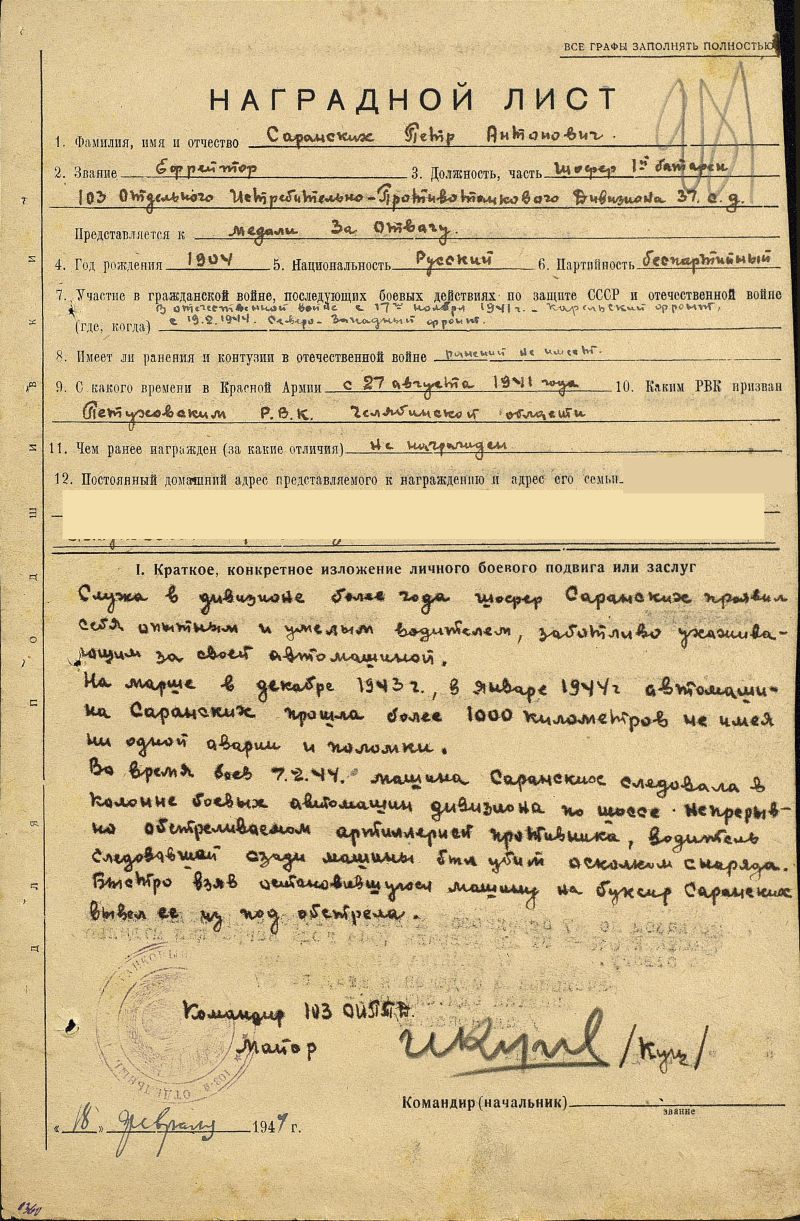 ВСЕ ГРАФЫ ЗАПОЛНЯТЬ ПОЛНОСТЬЮ
НАГРАДНОЙ ЛИСТ
1. Фамилия, имя и отчество Саранских Петр Антонович.
2. Звание Ефрейтор 3. Должность, часть Шофер 1й батареи
103 Отдельного Истребительно-Противотанкового Дивизиона 37 с.д.
Представляется к медали За Отвагу.
4. Год рождения 1904 5. Национальность Русский 6. Партийность беспартийный
7. Участие в гражданской войне, последующих боевых действиях по защите СССР и отечественной войне
В отечественной войне с 17го ноября 1941г. - Карельский фронт,
(где, когда) с 19.2.1944. Северо-Западный фронт.
8. Имеет ли ранения и контузии в отечественной войне ранений не имеет.
9. С какого времени в Красной Армии с 27 августа 1941 года 10. Каким РВК призван
Петуховским Р.В.К. Челябинской области
11. Чем ранее награжден (за какие отличия) Не награжден
12. Постоянный домашний адрес представляемого к награждению и адрес его семьи
I. Краткое, конкретное изложение личного боевого подвига или заслуг
Служа в дивизионе более года шофер Саранских проявил
себя опытным и умелым водителем, заботливо ухажива-
ющим за своей автомашиной.
На марше в декабре 1943г., в январе 1944г автомаши-
на Саранских прошла более 1000 километров не имея
ни одной аварии и поломки.
Во время боев 7.2.44. машина Саранских следовала в
колонне боевых автомашин дивизиона по шоссе непрерыв-
но обстреливаемом артиллерией противника, водитель
следовавшей сзади машины был убит осколком снаряда.
Быстро взяв остановившуюся машину на буксир Саранских
вывел ее из под обстрела.
Командир 103 ОИПТД.
Майор /Куц/
Командир (начальник)
звание
«18» февраля 1944 г.